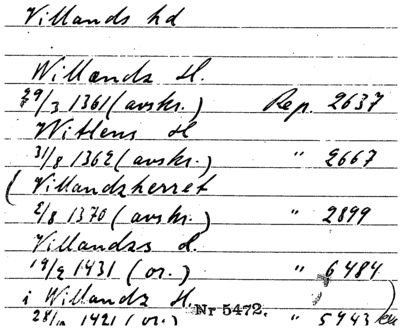 Villands hd
Willandz H.
29/3 1361 (avskr.) Rep. 2637
Witlens H
31/8 1362 (avskr.) " 2667
( Villandzherret
2/8 1370 (avskr.) " 2899
Villandzs H.
19/2 1431 (or.) " 6484
i Willandz H.
Nr 5472.
1421 (or.) " 5943